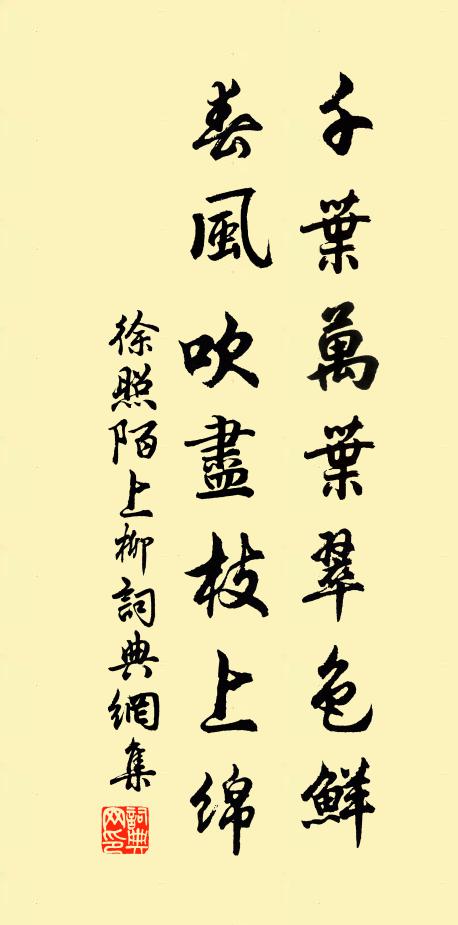 千葉萬葉翠色鮮
春風吹盡枝上綿
徐照陌上柳詞典網集
詞典網印